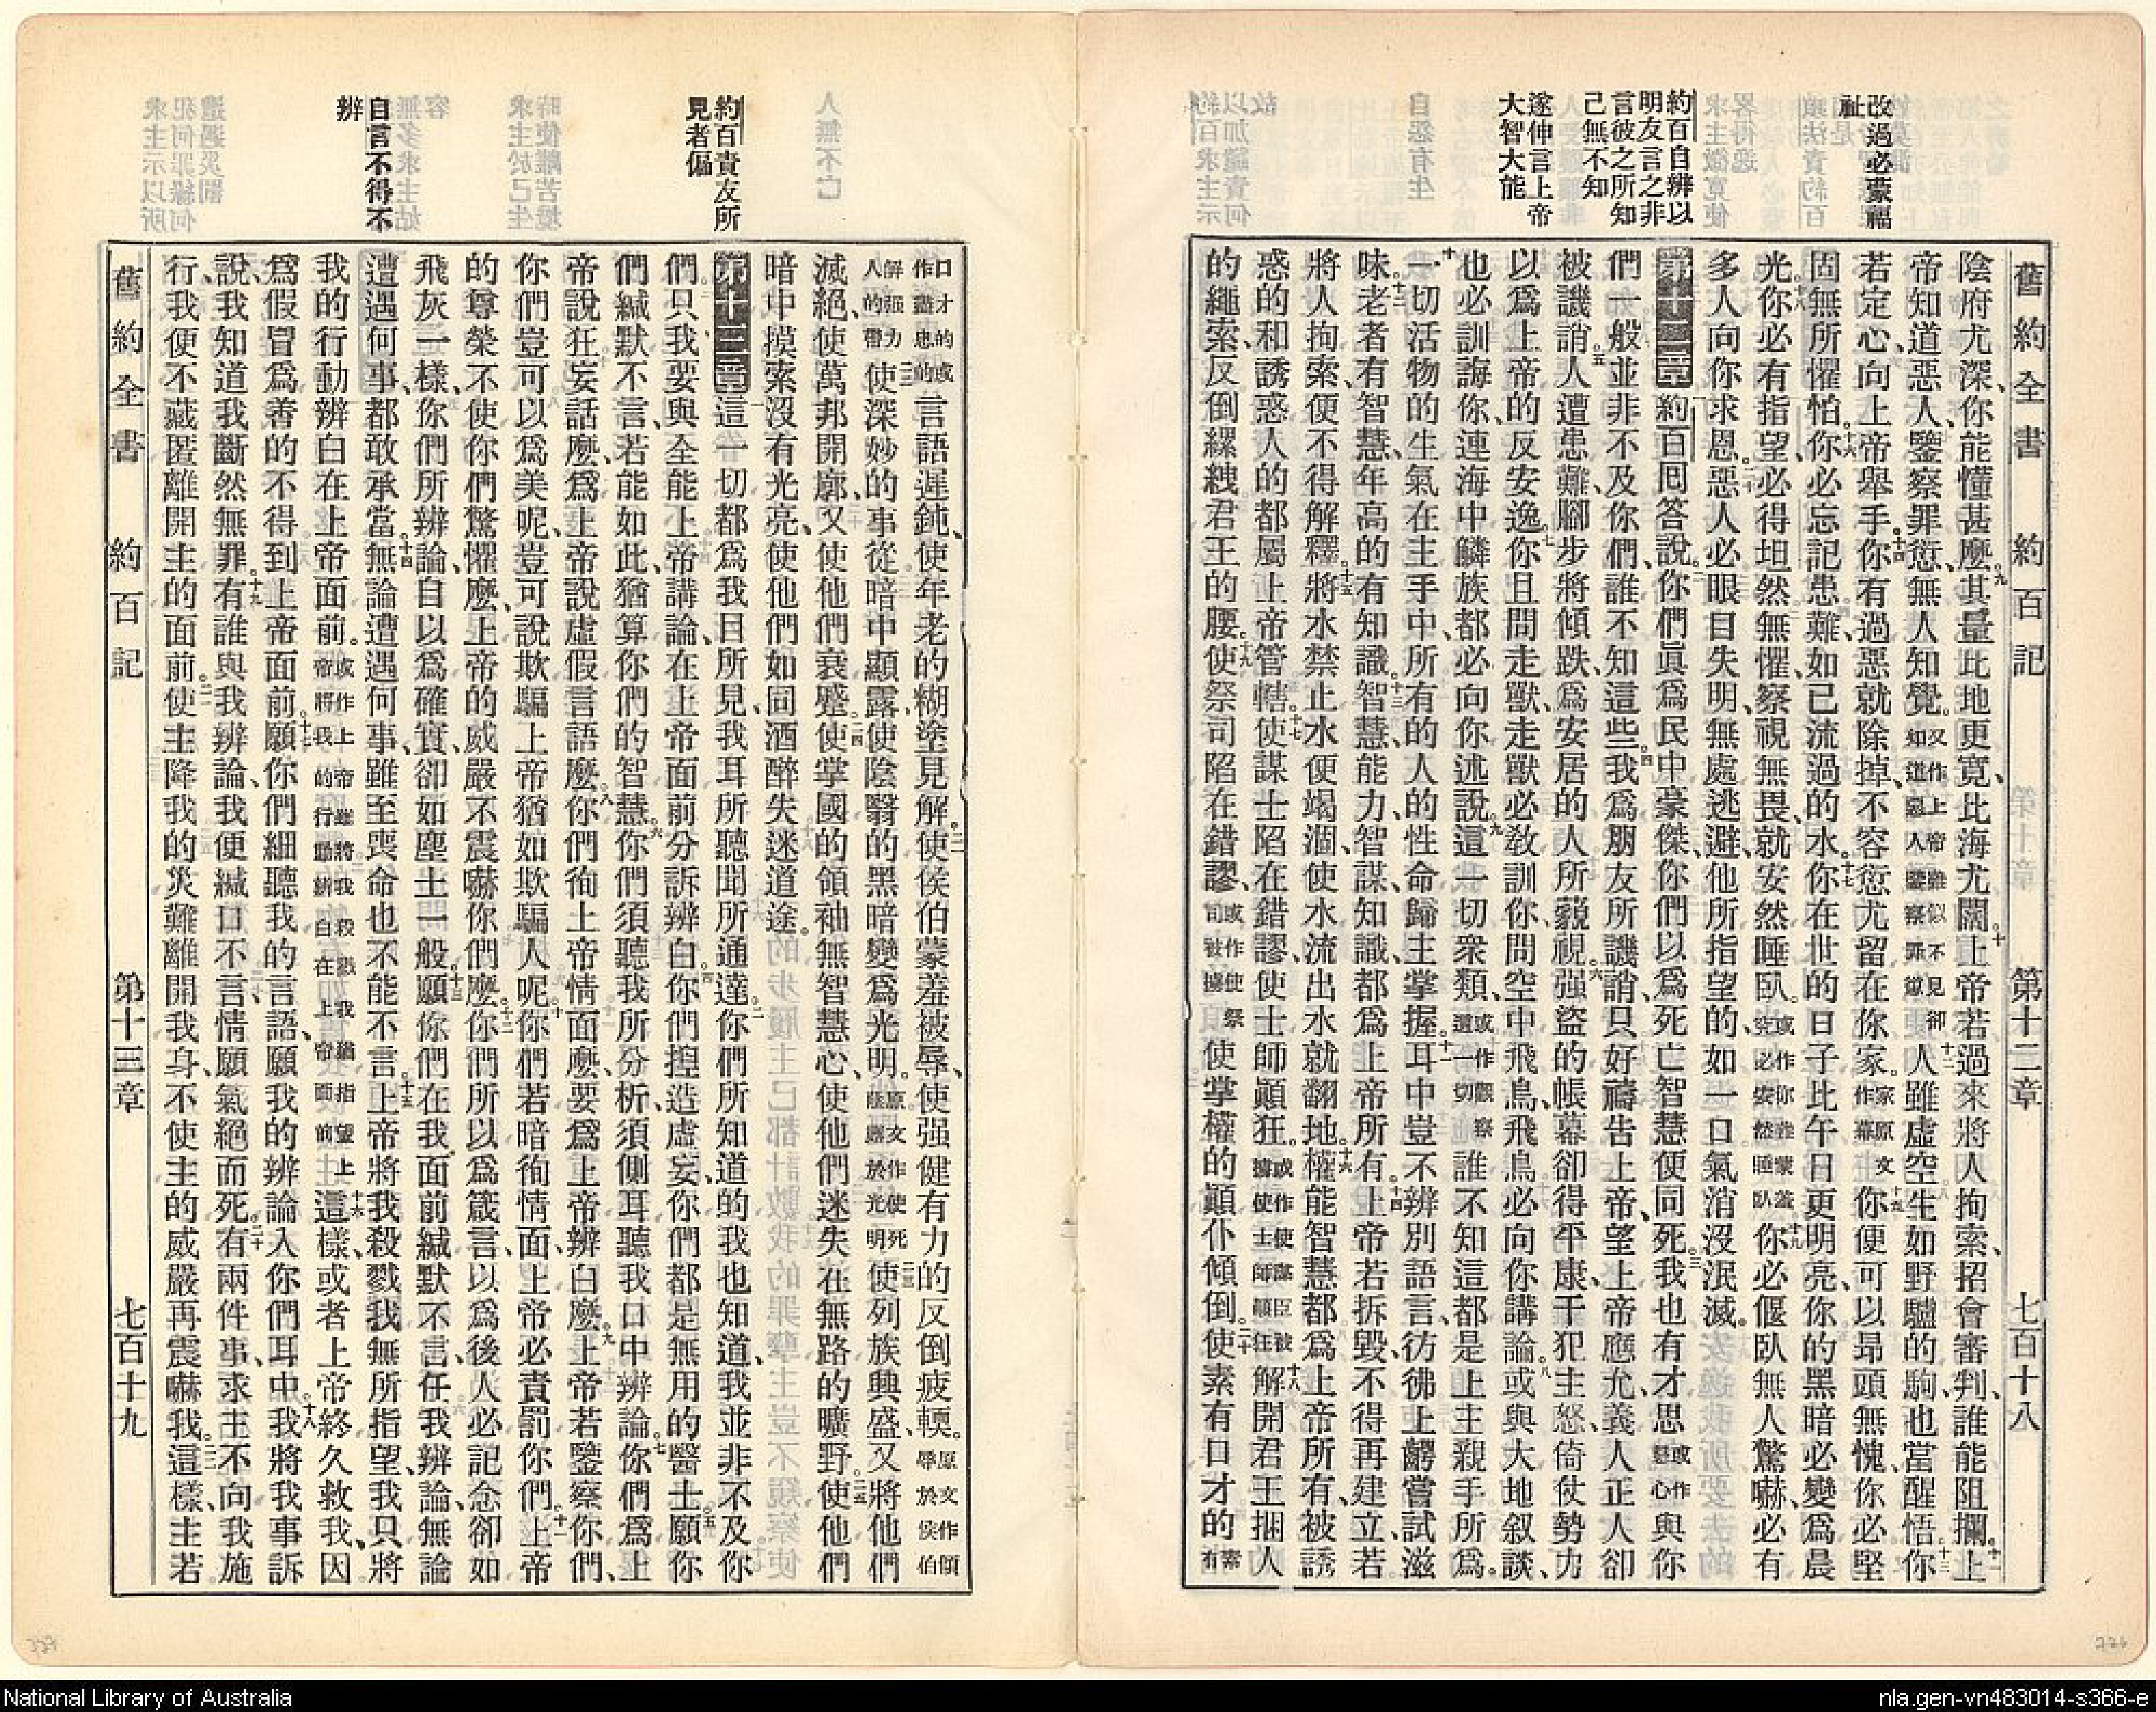 改過必蒙福
祉
約百自辨以
明友言之非
言彼之所知
己無不知
遂伸言上帝
大智大能
舊約全書 約百記 第十二章 七百十八
陰府尤深、你能懂甚麼。九其量比地更寬、比海尤闊。十上帝若過來將人拘索、招會審判、誰能阻攔。十一上
帝知道惡人、鑒察罪愆、無人知覺。又作上帝雖似不見卻如道惡人鑒察罪愆十二人雖虛空、生如野驢的駒、也當醒悟。十三你
若定心向上帝舉手、十四你有過惡就除掉、不容愆尤留在你家。家原文作幕十五你便可以昂頭無愧、你必堅
固無所懼怕。十六你必忘記患難、如已流過的水。十七你在世的日子比午日更明亮、你的黑暗必變爲晨
光。十八你必有指望、必得坦然無懼、察視無畏、就安然睡臥。十九你必偃臥無人驚嚇、必有
多人向你求恩。二十惡人必眼目失明、無處逃避、他所指望的如一口氣消沒泯滅。
第十二章 約百囘答說、二你們眞爲民中豪傑、你們以爲死亡智慧便同死。三我也有才思或作慧心與你
們一般、並非不及你們、誰不知這些。四我爲朋友所譏誚、只好禱告上帝、望上帝應允、義人正人卻
被譏誚。五人遭患難、腳步將傾跌、爲安居的人所藐視。六强盜的帳幕卻得平康、干犯主怒、倚仗勢力
以爲上帝的、反安逸。七你且問走獸、走獸必敎訓你、問空中飛鳥、飛鳥必向你講論。八或與大地叙談、
也必訓誨你、連海中鱗族都必向你述說。九這一切衆類、或作觀察這一切誰不知這都是上主親手所爲。
十一切活物的生氣在主手中、所有的人的性命歸主掌握。十一耳中豈不辨別語言、彷彿上齶嘗試滋
味。十二老者有智慧、年高的有知識。十三智慧能力、智謀知識、都爲上帝所有。十四上帝若拆毀、不得再建立、若
將人拘索、便不得解釋。十五將水禁止、水便竭涸、使水流出、水就翻地。十六權能智慧都爲上帝所有、被誘
惑的和誘惑人的都屬上帝管轄。十七使謀士陷在錯謬、使士師顚狂。十八解開君王捆人
的繩索、反倒縲絏君王的腰。十九使祭司陷在錯謬、或作使祭司被擄使掌權的顚仆傾倒。二十使素有口才的素有
約百責友所
見者偏
自言不得不
辨
口才的或作盡忠的言語遲鈍、使年老的糊塗見解。二一使侯伯蒙羞被辱、使强健有力的反倒疲輭。原文作傾辱於侯伯
解强力人的帶二二使深妙的事從暗中顯露、使陰翳的黑暗變爲光明。二三使列族興盛、又將他們
滅絕、使萬邦開廓、又使他們衰蹙。二四使掌國的領袖無智慧心、使他們迷失在無路的曠野。二五使他們
暗中摸索沒有光亮、使他們如同酒醉失迷道途。
第十三章 一這一切都爲我目所見、我耳所聽聞、所通達。二你們所知道的我也知道、我並非不及你
們。三只我要與全能上帝講論、在上帝面前分訴辨白。四你們揑造虛妄、你們都是無用的醫士。五願你
們緘默不言、若能如此、猶算你們的智慧。六你們須聽我所分析、須側耳聽我口中辨論。七你們爲上
帝說狂妄話麼、爲上帝說虛假言語麼。八你們徇上帝情面麼、要爲上帝辨白麼。九上帝若鑒察你們、
你們豈可以爲美呢、豈可說欺騙上帝猶如欺騙人呢。十你們若暗徇情面、上帝必責罰你們。十一上帝
的尊榮不使你們驚懼麼、上帝的威嚴不震嚇你們麼。十二你們所以爲箴言、以爲後人必記念、卻如
飛灰一樣、你們所辨論、自以爲確實、卻如塵土一般。十三願你們在我面前緘默不言、任我辨論、無論
遭遇何事、都敢承當。十四無論遭遇何事、雖至喪命、也不能不言。十五上帝將我殺戮、我無所指望、我只將
我的行動辨白在上帝面前。或作上帝雖將我殺戮我猶指望上帝將我的行動辨白在上帝面前十六這樣、或者上帝終久救我、因
爲假冒爲善的不得到上帝面前。十七願你們細聽我的言語、願我的辨論入你們耳中。十八我將我事訴
說、我知道我斷然無罪。十九有誰與我辨論、我便緘口不言、情願氣絕而死。二十有兩件事、求主不向我施
行、我便不藏匿離開主的面前。二一使主降我的災難離開我身、不使主的威嚴再震嚇我。二二這樣、主若
舊約全書 約百記 第十三章 七百十九
National Library of Australia
nla.gen-vn483014-s366-e